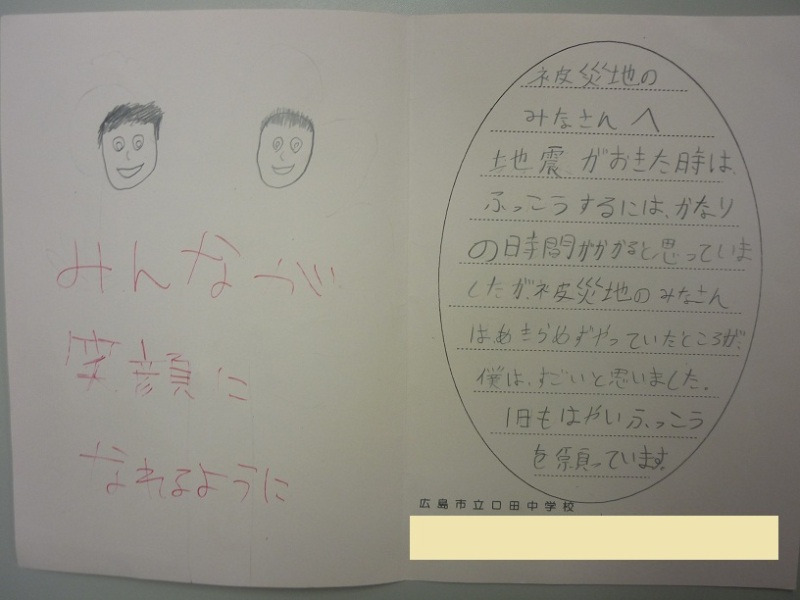 みんなが
笑顔に
なれるように
被災地の
みなさんへ
地震がおきた時は、
ふっこうするには、かなり
の時間がかかると思っていま
したが、被災地のみなさん
は、あきらめずやっていたところが、
僕は、すごいと思いました。
1日もはやいふっこう
を願っています。
広島市立口田中学校